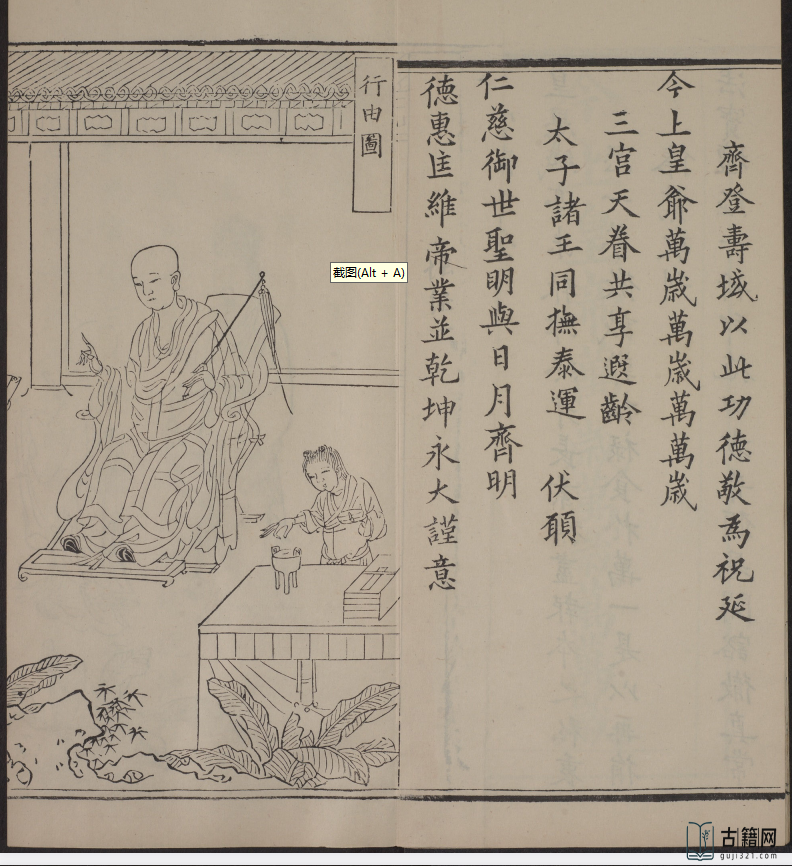 齊登壽域以此功德敬為祝延
今上皇爺萬歲萬歲萬萬歲
三宮天眷共享遐齡
太子諸王同撫泰運 伏願
仁慈御世聖明與日月齊明
德惠匡維帝業並乾坤永大謹意
行由圖
截图(Alt + A)
古籍网
guji321.com